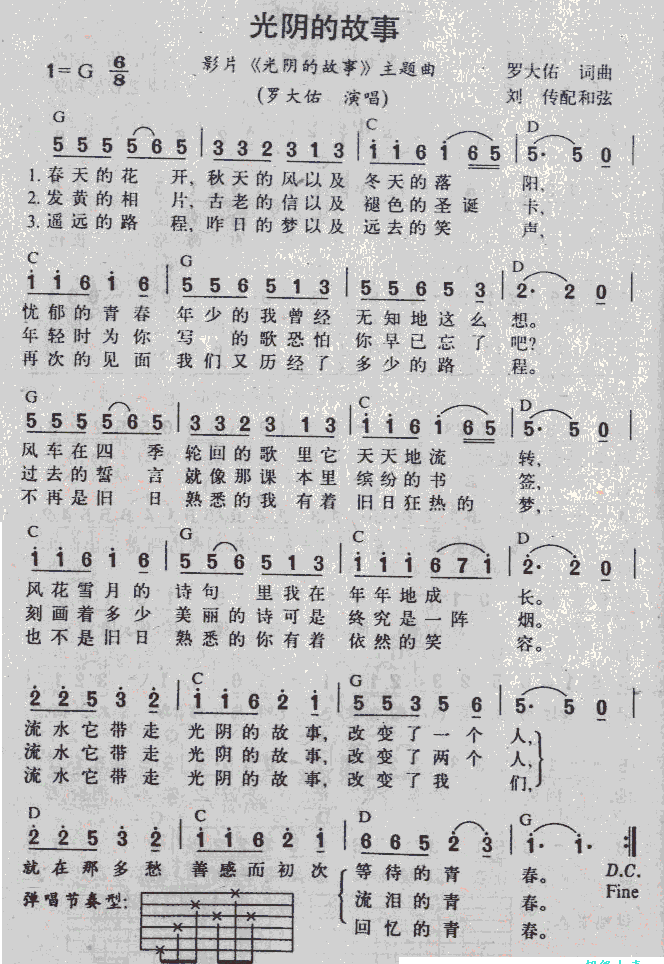 光阴的故事
1=G 6/8
影片《光阴的故事》主题曲
(罗大佑 演唱)
罗大佑 词曲
刘 传配和弦
G C D
5 5 5 5 6 5 | 3 3 2 3 1 3 | i i 6 i 6 5 | 5· 5 0 |
1. 春天的花 开, 秋天的风以及 冬天的落 阳,
2. 发黄的相 片, 古老的信以及 褪色的圣诞 卡,
3. 遥远的路 程, 昨日的梦以及 远去的笑 声,
C G D
i i 6 i 6 | 5 5 6 5 1 3 | 5 5 6 5 3 | 2· 2 0 |
忧郁的青春 年少的我曾经 无知地这么 想。
年轻时为你 写 的歌恐怕 你早已忘了 吧?
再次的见面 我们又历经了 多少的路 程。
G C D
5 5 5 5 6 5 | 3 3 2 3 1 3 | i i 6 i 6 5 | 5· 5 0 |
风车在四 季 轮回的歌 里它 天天地流 转,
过去的誓 言 就像那课 本里 缤纷的书 签,
不再是旧 日 熟悉的我 有着 旧日狂热的 梦,
C G C D
i i 6 i 6 | 5 5 6 5 1 3 | i i i 6 7 i | 2· 2 0 |
风花雪月的 诗句 里我在 年年地成 长。
刻画着多少 美丽的诗可是 终究是一阵 烟。
也不是旧日 熟悉的你有着 依然的笑 容。
D C G
2 2 5 3 2 | i i 6 2 i | 5 5 3 5 6 | 5· 5 0 |
流水它带走 光阴的故事, 改变了一个 人,
流水它带走 光阴的故事, 改变了两个 人,
流水它带走 光阴的故事, 改变了我 们,
D C D G
2 2 5 3 2 | i i 6 2 i | 6 6 5 2 3 | i· i· :‖
就在那多愁 善感而初次 等待的青 春。 D.C.
弹唱节奏型: 流泪的青 春。 Fine
回忆的青 春。